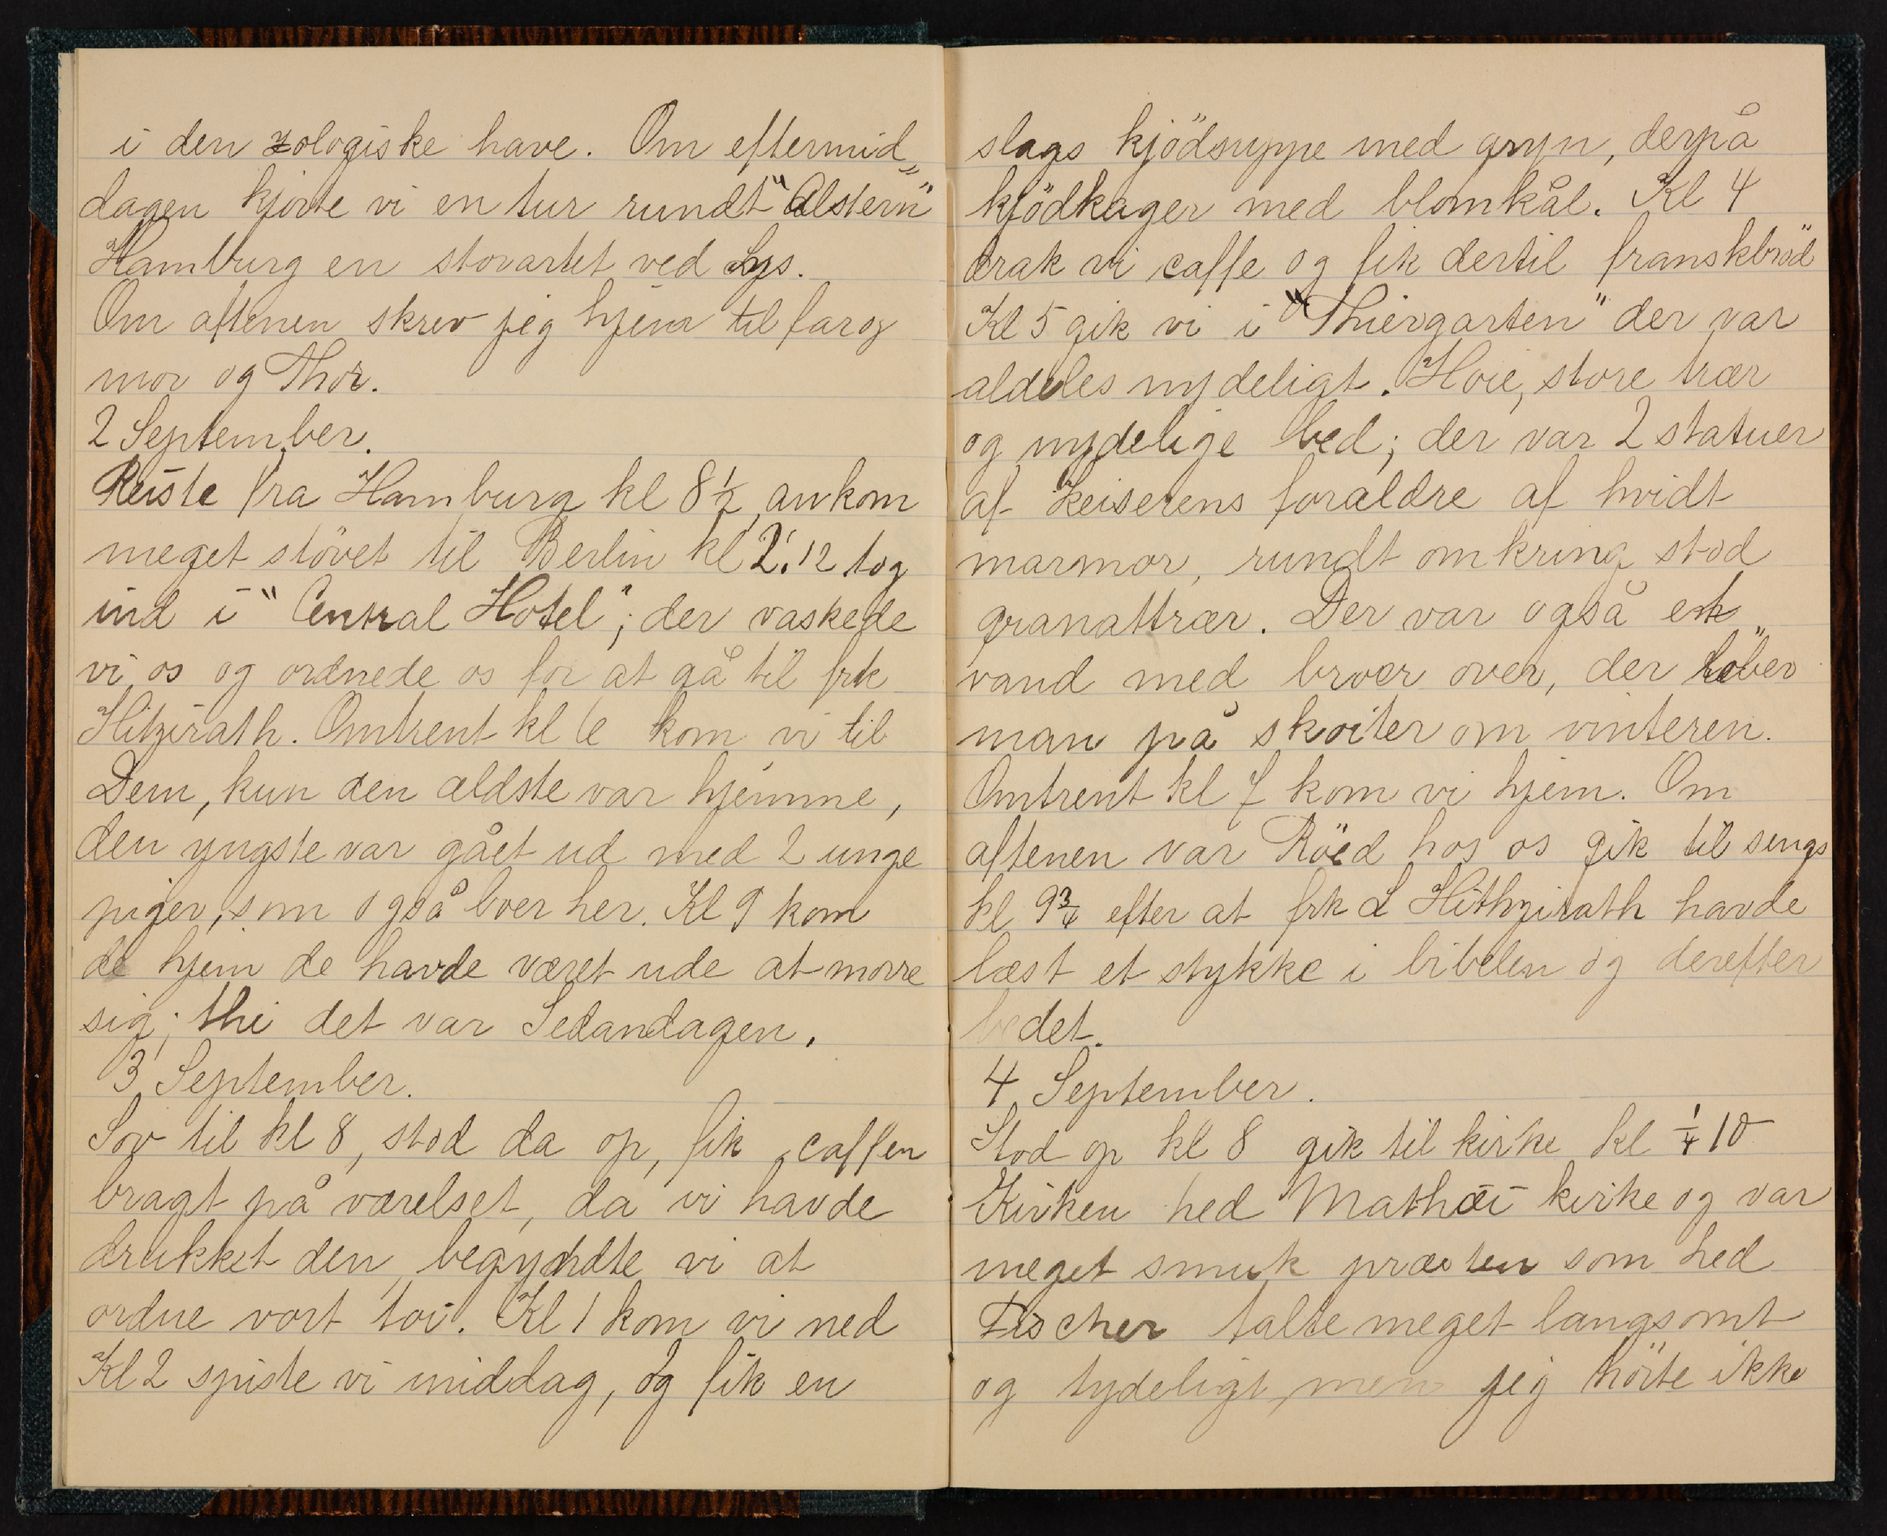 i den zologiske have. Om eftermid„
dagen kjørte vi en tur rundt "Alstern"
Hamburg en storartet ved Lys.
Om aftenen skrev jeg hjem til far og
mor og Thor.
2 September.
Reiste fra Hamburg kl 8½ ankom
meget støvet til Berlin kl 2.12 tog
ind i "Central Hotel"; der vaskede
vi os og ordnede os for at gå til frk
Hitzirath. Omtrent kl 6 kom vi til
Dem, kun den ældste var hjemme,
den yngste var gået ud med 2 unge
piger, som også boer her. Kl 9 kom
de hjem de havde været ude at more
sig; thi det var Sedandagen.
3 September.
Sov til kl 8, stod da op, fik caffen
bragt på værelset, da vi havde
drukket den, begyndte vi at
ordne vort toi. Kl 1 kom vi ned
Kl 2 spiste vi middag, og fik en
slags kjödsuppe med gryn, derpå
kjödkager med blomkål. Kl 4
drak vi caffe og fik dertil franskbröd
Kl 5 gik vi i "Thiergarten" der var
aldeles nydeligt. Hoie, store trær
og nydelige bed; der var 2 statuer
af keiserens forældre af hvidt
marmor, rundt omkring stod
granattrær. Der var også et
vand med broer over, der löber
man på skoiter om vinteren.
Omtrent kl 7 kom vi hjem. Om
aftenen var Röed hos os gik til sengs
kl 9¾ efter at frk L Hithzirath havde
læst et stykke i bibelen og derefter
bedet.
4 September.
Stod op kl 8 gik til kirke kl ¼ 10
Kirken hed Mathæi kirke og var
meget smuk præsten som hed
Fischer talte meget langsomt
og tydeligt, men jeg hörte ikke